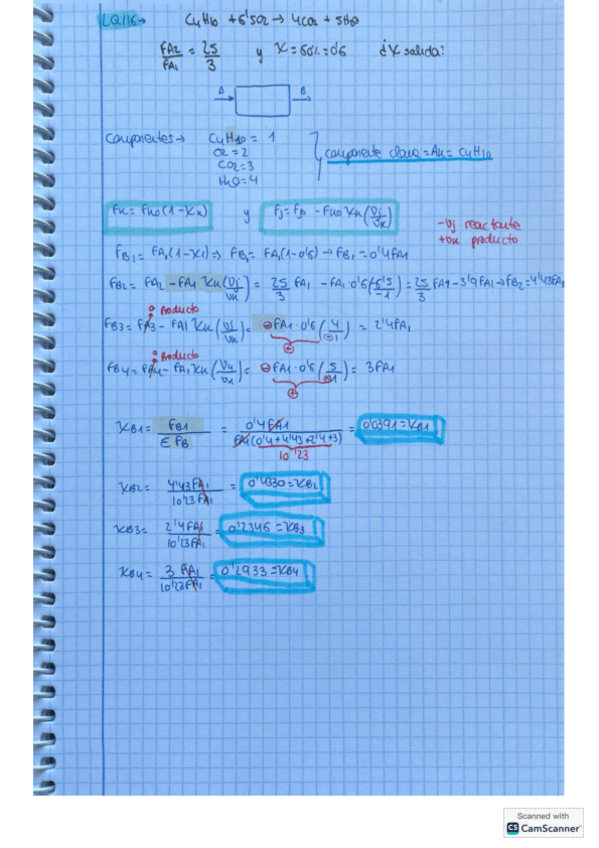 LQ116→ C4H10 + 6'5O2 → 4CO2 + 5H2O
FA2/FA1 = 25/3 y X = 60% = 0'6 ¿X salida?
A B
Componentes → C4H10 = 1
O2 = 2
CO2 = 3
H2O = 4
componente clave = AK = C4H10
FK = FK0 (1 - XK) y Fj = Fj0 - FK0 XK (νj/νK)
-νj reactante
+νK producto
FB1 = FA1 (1 - X1) ⇒ FB1 = FA1 (1 - 0'6) → FB1 = 0'4 FA1
FB2 = FA2 - FA1 XK (νj/νK) = 25/3 FA1 - FA1 0'6 (-6'5/-1) = 25/3 FA1 - 3'9 FA1 → FB2 = 4'43 FA1
0 Producto
FB3 = FA3 - FA1 XK (νj/νK) = ⊖ FA1 · 0'6 (4/⊖1) = 2'4 FA1
⊕
0 Producto
FB4 = FA4 - FA1 XK (ν4/ν1) = ⊖ FA1 · 0'6 (5/⊖1) = 3 FA1
⊕
XB1 = FB1/Σ FB = 0'4 FA1/FA1 (0'4 + 4'43 + 2'4 + 3) = 0'0391 = XB1
10'23
XB2 = 4'43 FA1/10'23 FA1 = 0'4330 = XB2
XB3 = 2'4 FA1/10'23 FA1 = 0'2346 = XB3
XB4 = 3 FA1/10'23 FA1 = 0'2933 = XB4
Scanned with
CS CamScanner